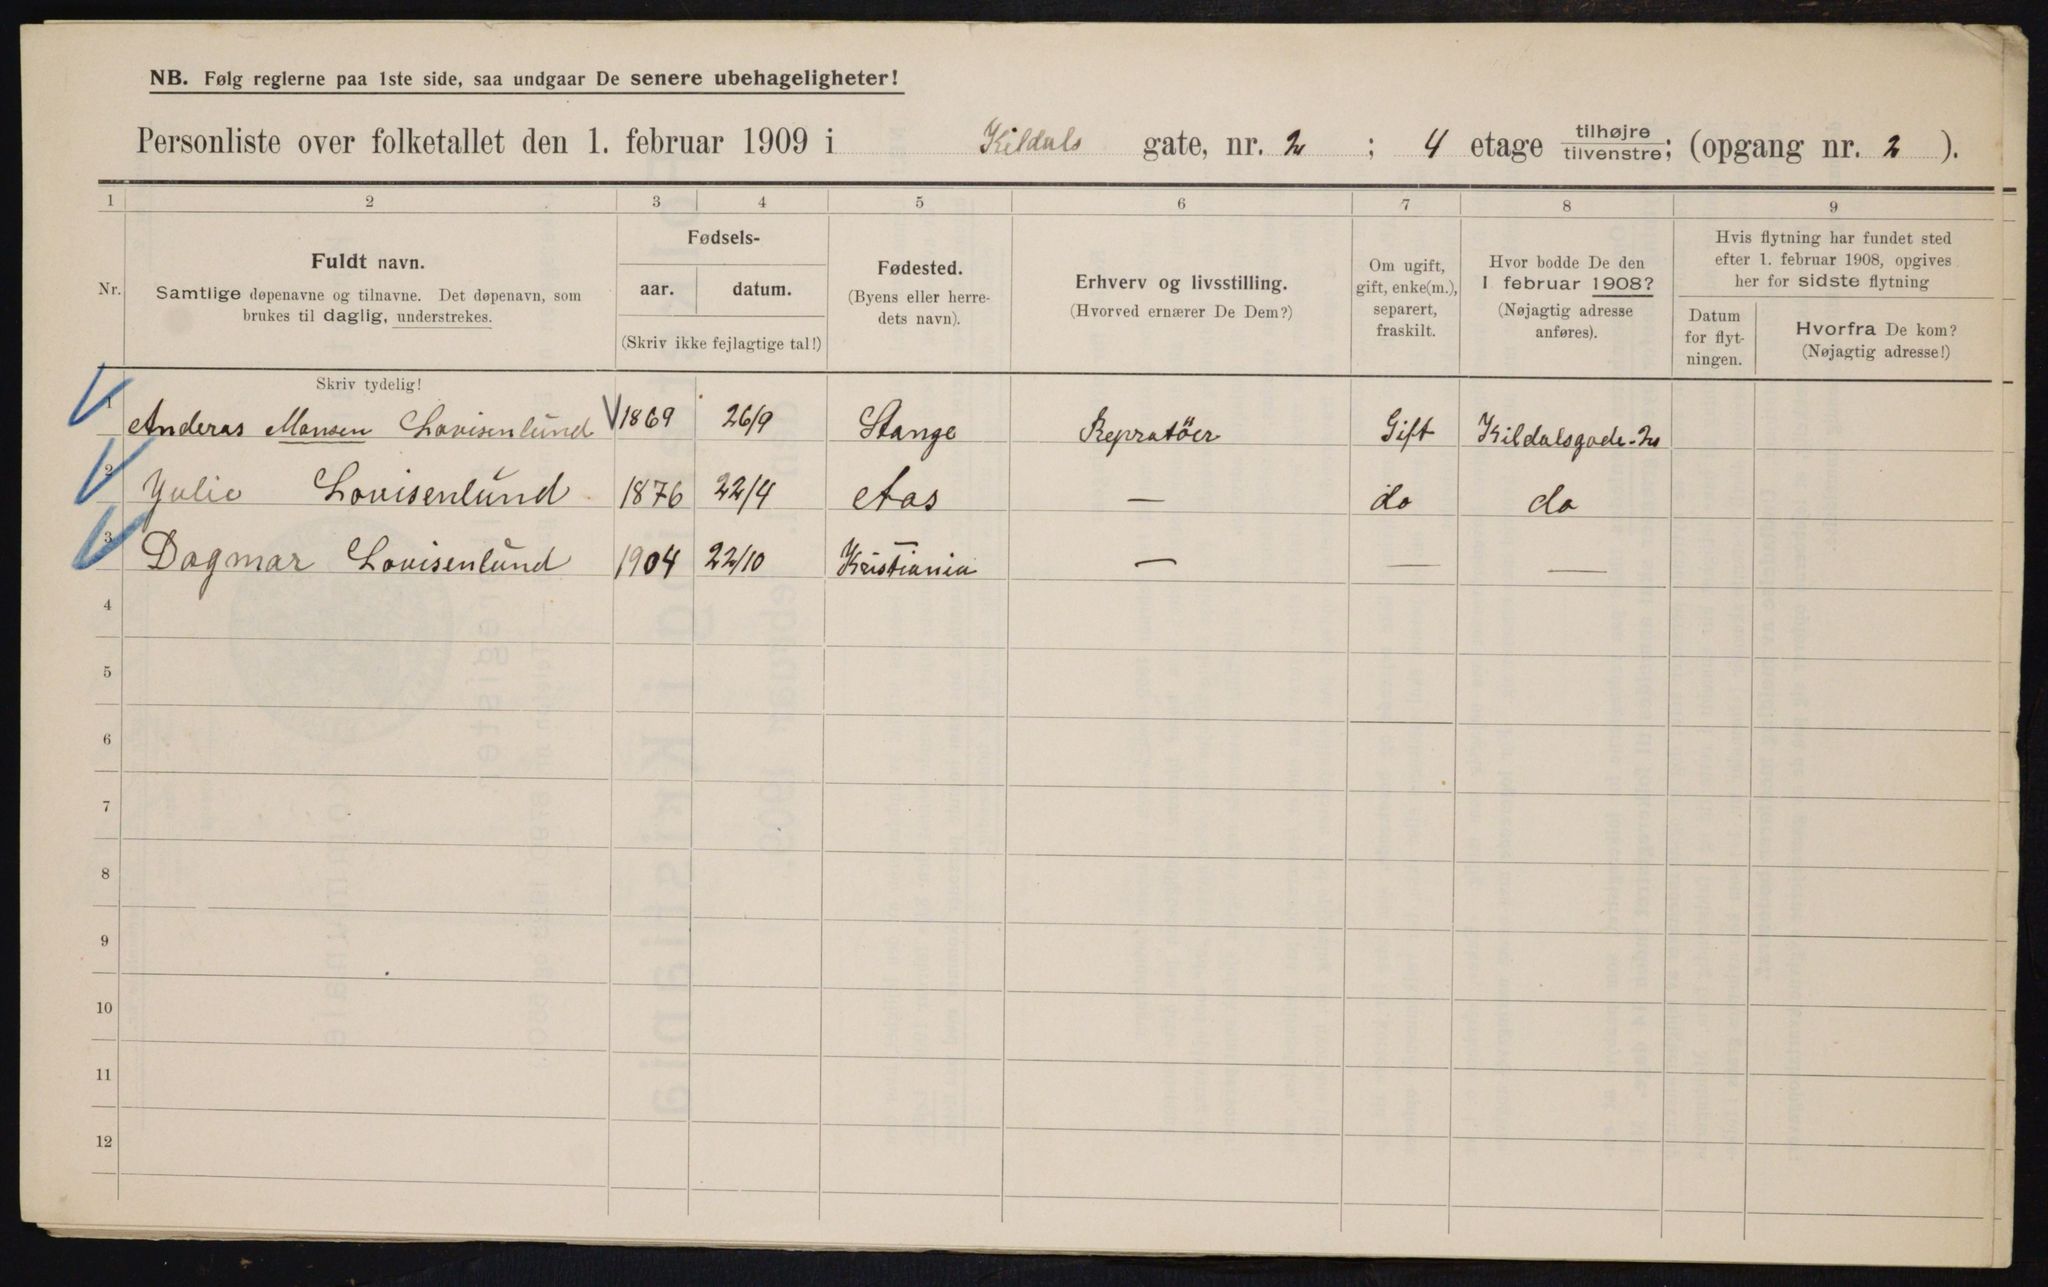 NB. Følg reglerne paa 1ste side, saa undgaar De senere ubehageligheter!
Personliste over folketallet den 1. februar 1909 i Kildals gate, nr. 2 ; 4 etage tilhøjre tilvenstre; (opgang nr. 2 ).
1 2 3 4 5 6 7 8 9
Nr.
Fuldt navn.
Samtlige døpenavne og tilnavne. Det døpenavn, som
brukes til daglig, understrekes.
Skriv tydelig!
Fødsels-
aar. datum.
(Skriv ikke fejlagtige tal!)
Fødested.
(Byens eller herre-
dets navn).
Erhverv og livsstilling.
(Hvorved ernærer De Dem?)
Om ugift,
gift, enke(m.),
separert,
fraskilt.
Hvor bodde De den
1 februar 1908?
(Nøjagtig adresse
anføres).
Hvis flytning har fundet sted
efter 1. februar 1908, opgives
her for sidste flytning
Datum
for flyt-
ningen.
Hvorfra De kom?
(Nøjagtig adresse!)
1 Anderas Monsen Lovisenlund 1869 26/9 Stange Repratöer Gift Kildalsgade-2
2 Julie Lovisenlund 1876 22/4 Aas — do do
3 Dagmar Lovisenlund 1904 22/10 Kristiania — — —
4
5
6
7
8
9
10
11
12